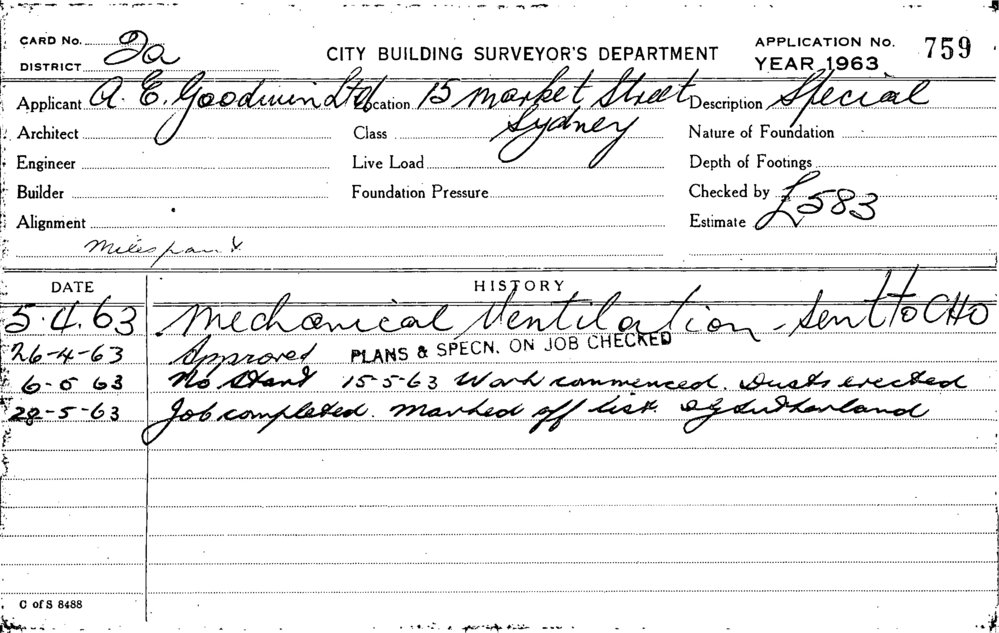 CARD No.
DISTRICT 2a
CITY BUILDING SURVEYOR'S DEPARTMENT
APPLICATION No. 759
YEAR 1963
Applicant A. E. Goodwin Ltd Location 15 Market Street Sydney Description Special
Architect Class Nature of Foundation
Engineer Live Load Depth of Footings
Builder Foundation Pressure Checked by
Alignment Estimate £583
DATE HISTORY
5.4.63 Mechanical Ventilation - Sent to CHO
26-4-63 Approved PLANS & SPECN. ON JOB CHECKED
6-5 63 No Start 15-5-63 Work commenced. Ducts erected
28-5-63 Job completed. Marked off list. Sutherland
C of S 8488